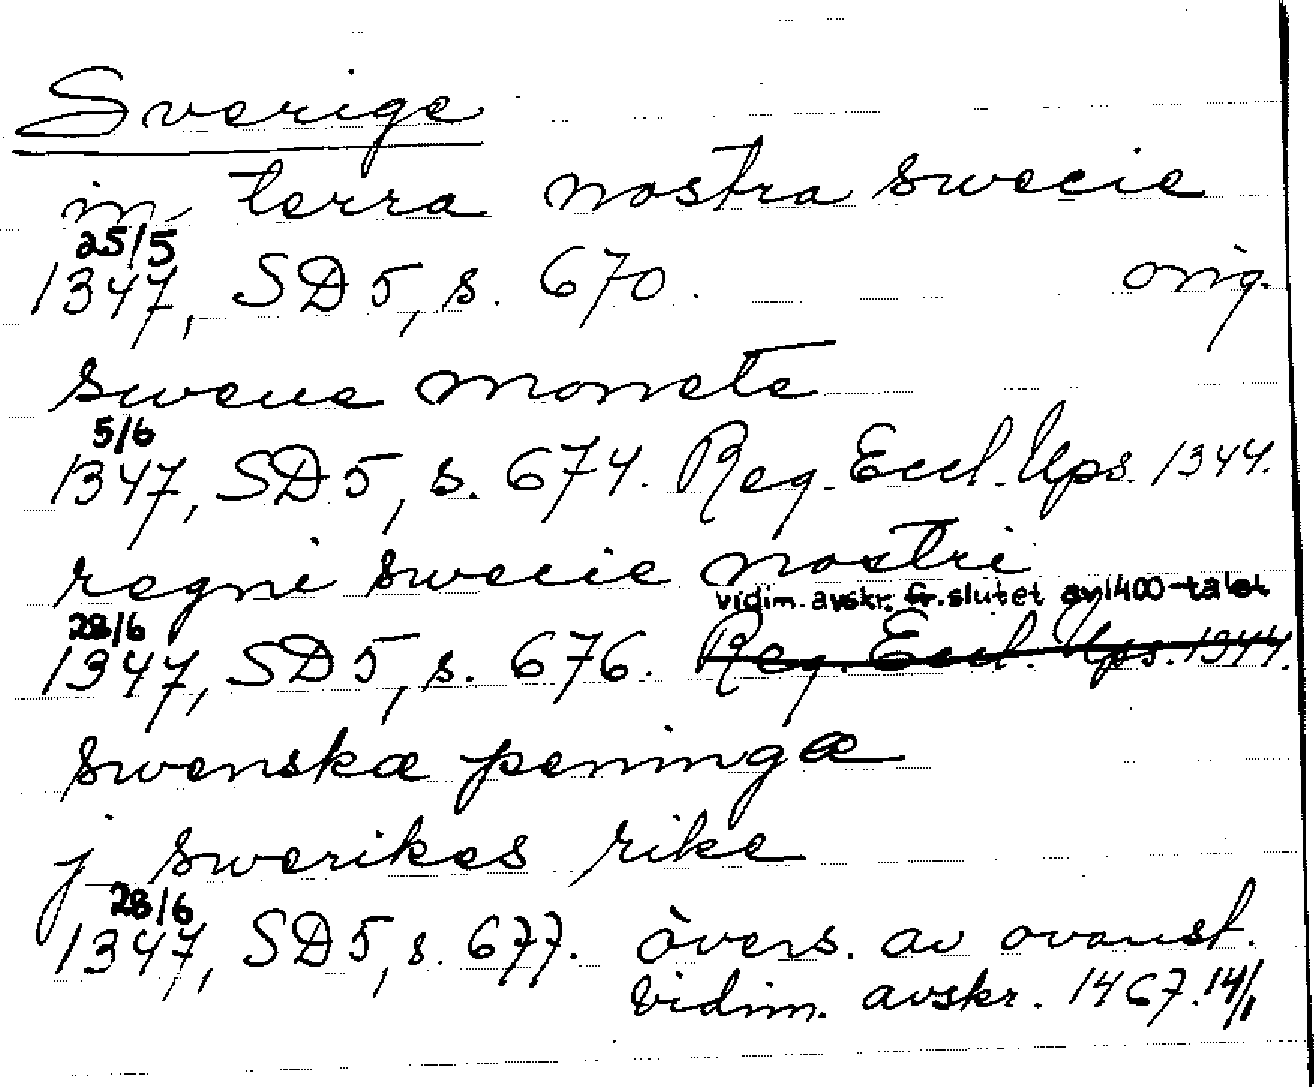 Sverige
in terra nostra swecie
25/5
1347, SD 5, s. 670. orig.
swecie monete
5/6
1347, SD 5, s. 674. Reg. Eccl. Ups. 1344.
regni swecie nostri
vidim. avskr. fr. slutet av 1400-talet
28/6
1347, SD 5, s. 676. Reg. Eccl. Ups. 1344.
swenskæ peningæ
j swerikes rike
28/6
1347, SD 5, s. 677. övers. av ovanst.
vidim. avskr. 1467 14/1